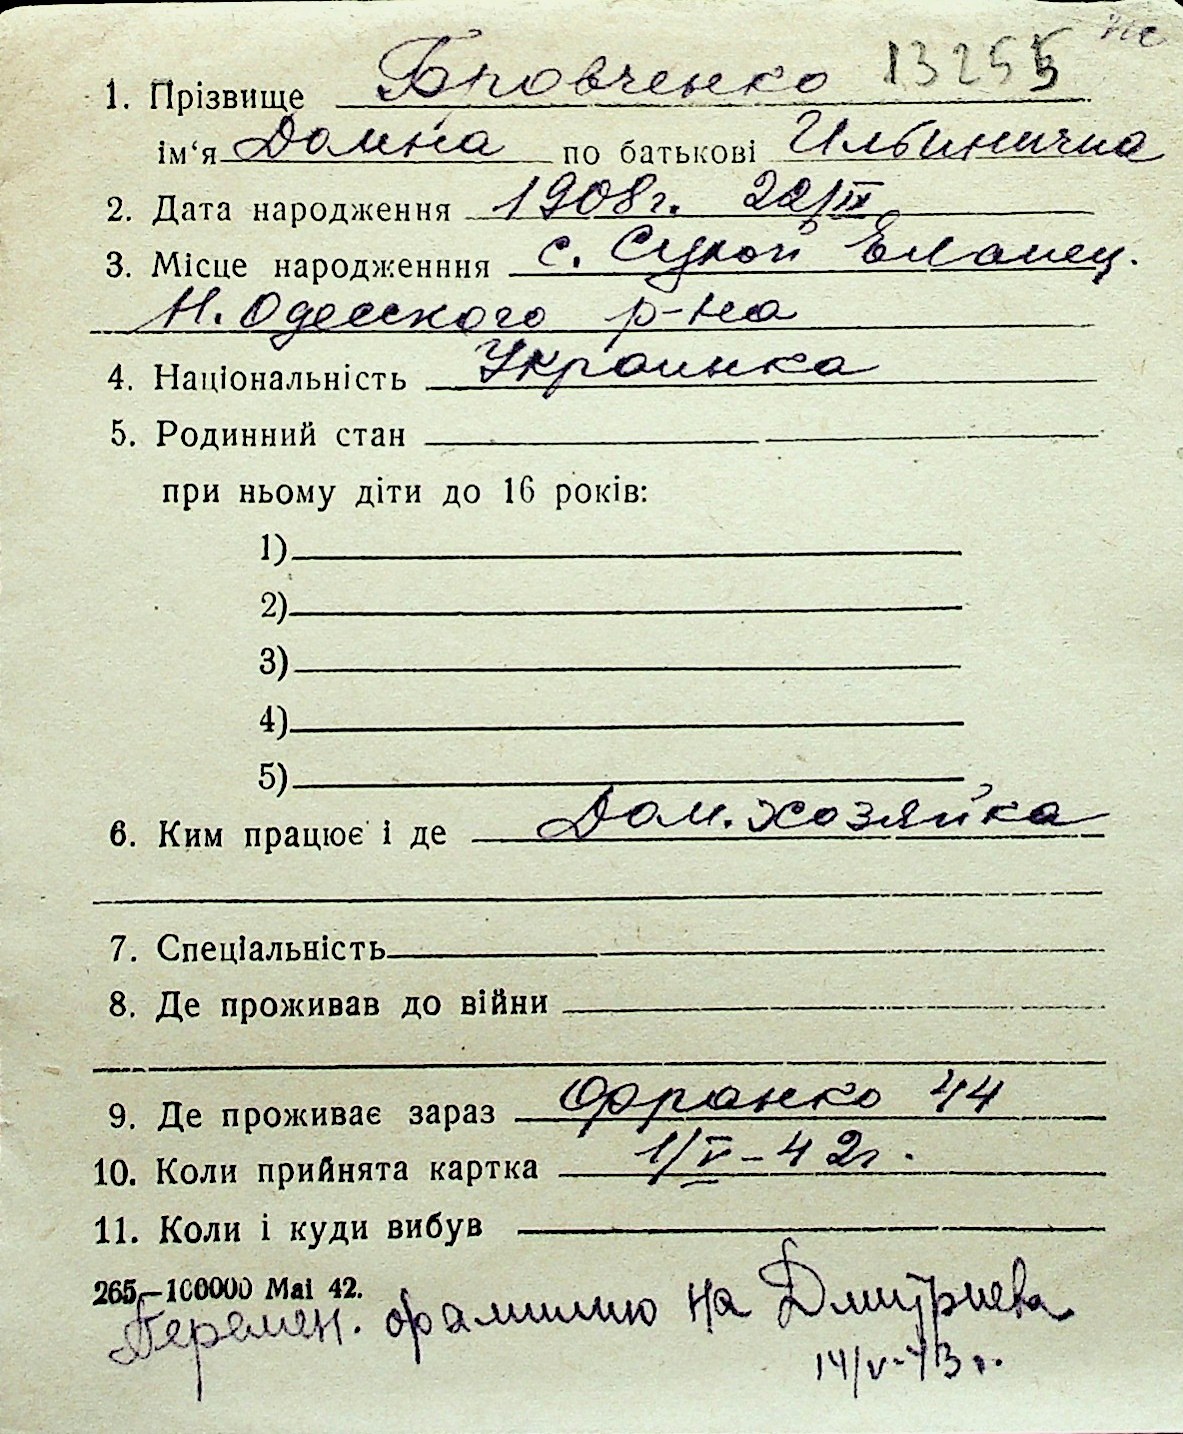 13255
1. Прізвище Бровченко
ім‘я Домна по батькові Ильинична
2. Дата народження 1908г. 22/IX
3. Місце народженння с. Сухой Еланец.
Н. Одесского р-на
4. Національність Украинка
5. Родинний стан
при ньому діти до 16 років:
1)
2)
3)
4)
5)
6. Ким працює і де Дом. хозяйка
7. Спеціальність
8. Де проживав до війни
9. Де проживає зараз Франко 44
10. Коли прийнята картка 1/V-42г.
11. Коли і куди вибув
265—100000 Mai 42.
Перемен. фамилию на Дмитриева
14/V-43г.